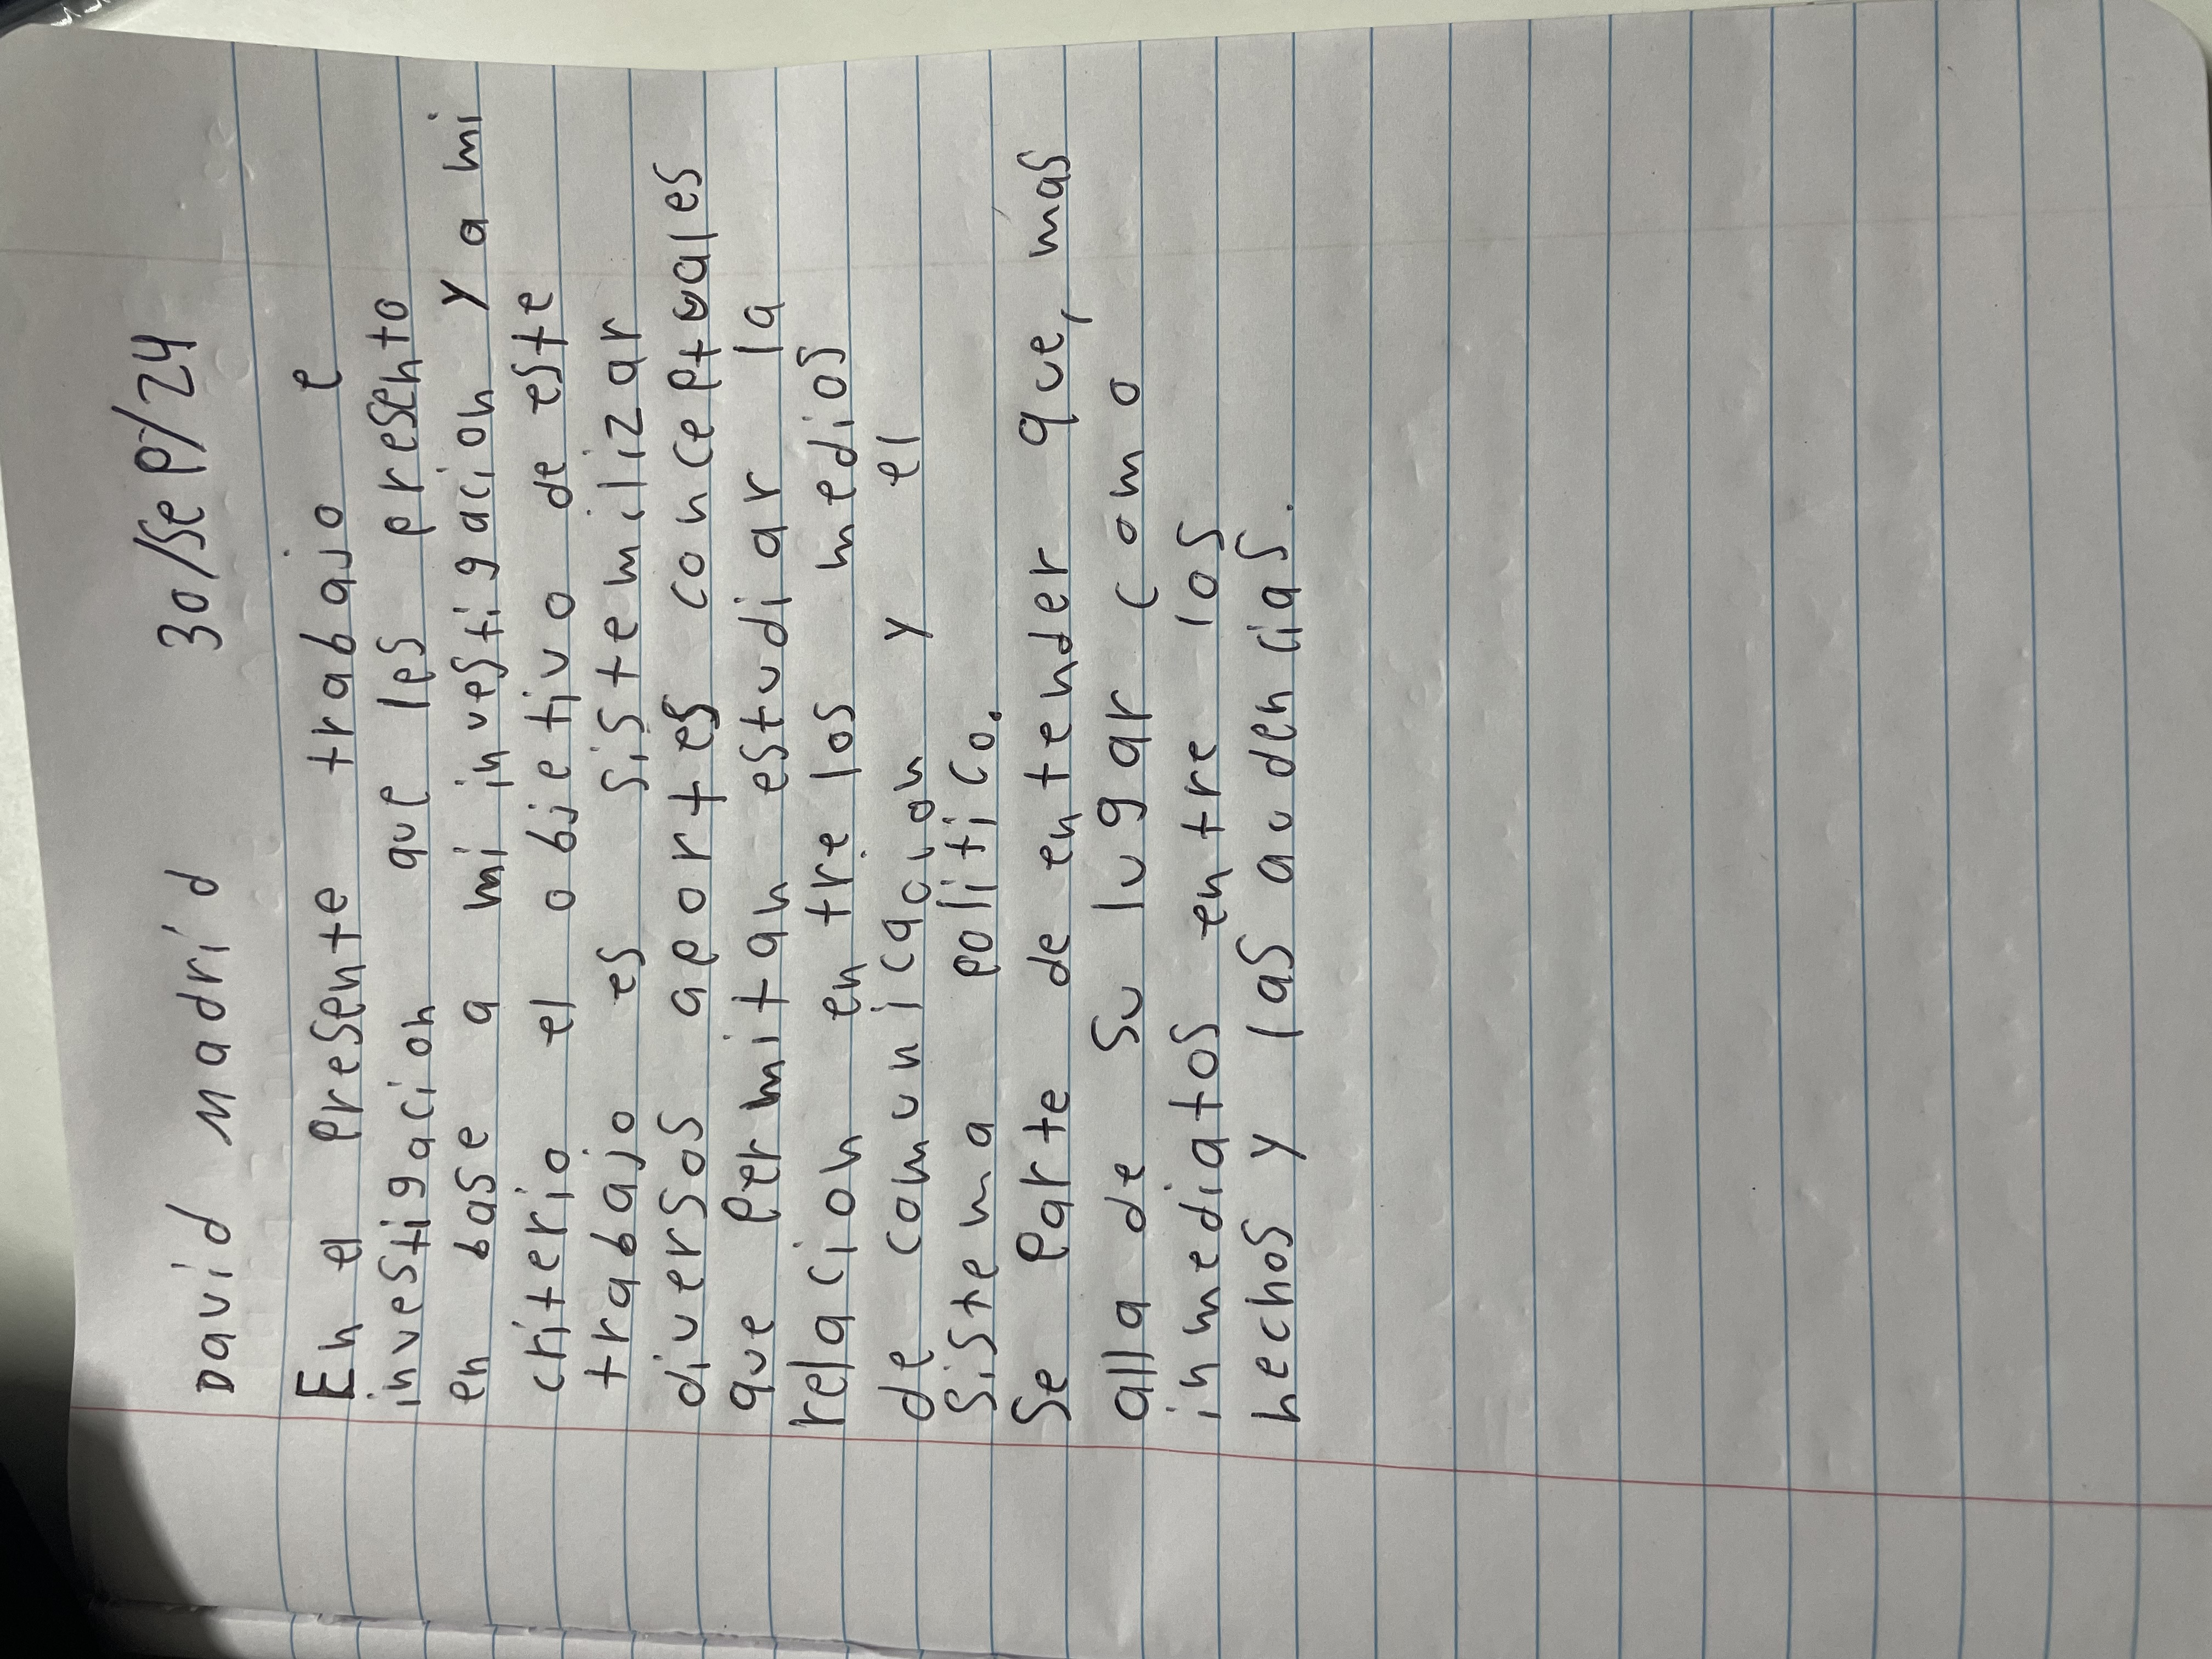 David Madrid 30/Sep/24
En el presente trabajo e
investigacion que les presento
en base a mi investigacion y a mi
criterio el objetivo de este
trabajo es sistemilizar
diversos aportes conceptuales
que permitan estudiar la
relacion entre los medios
de comunicacion y el
sistema politico.
Se parte de entender que, mas
alla de su lugar como
inmediatos entre los
hechos y las audencias.